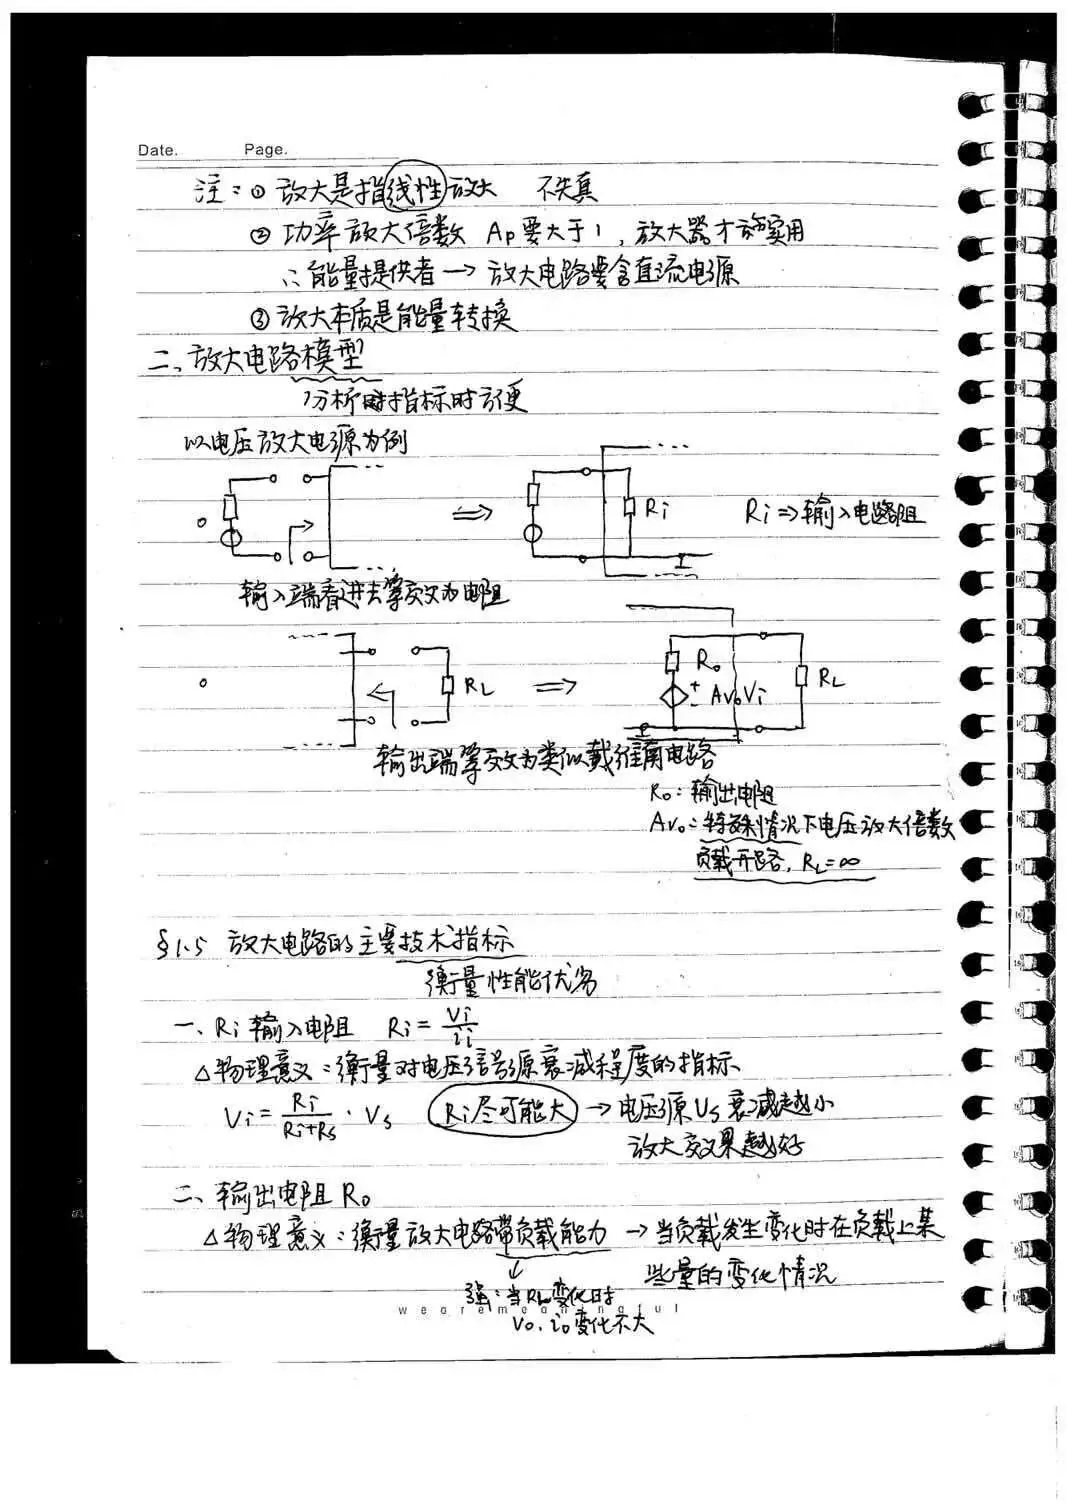 Date. Page.
注:① 放大是指线性放大 不失真
② 功率放大倍数 Ap要大于1,放大器才能实用
∴能量提供者→放大电路要含直流电源
③ 放大本质是能量转换
二、放大电路模型
分析时指标时方便
以电压放大电源为例
Ri
Ri⇒输入电阻
输入端看进去等效为电阻
RL
Ro
+
-
AvoVi
RL
输出端等效为类似戴维南电路
Ro:输出电阻
Avo:特殊情况下电压放大倍数
负载开路,RL=∞
§1.5 放大电路的主要技术指标
衡量性能优劣
一、Ri 输入电阻 Ri=Vi/ii
△物理意义:衡量对电压信号源衰减程度的指标
Vi=Ri/(Ri+Rs)·Vs Ri尽可能大→电压源Us衰减越小
放大效果越好
二、输出电阻Ro
△物理意义:衡量放大电路带负载能力→当负载发生变化时在负载上某
些量的变化情况
强:当RL变化时
wearemeaningful
Vo.io变化不大